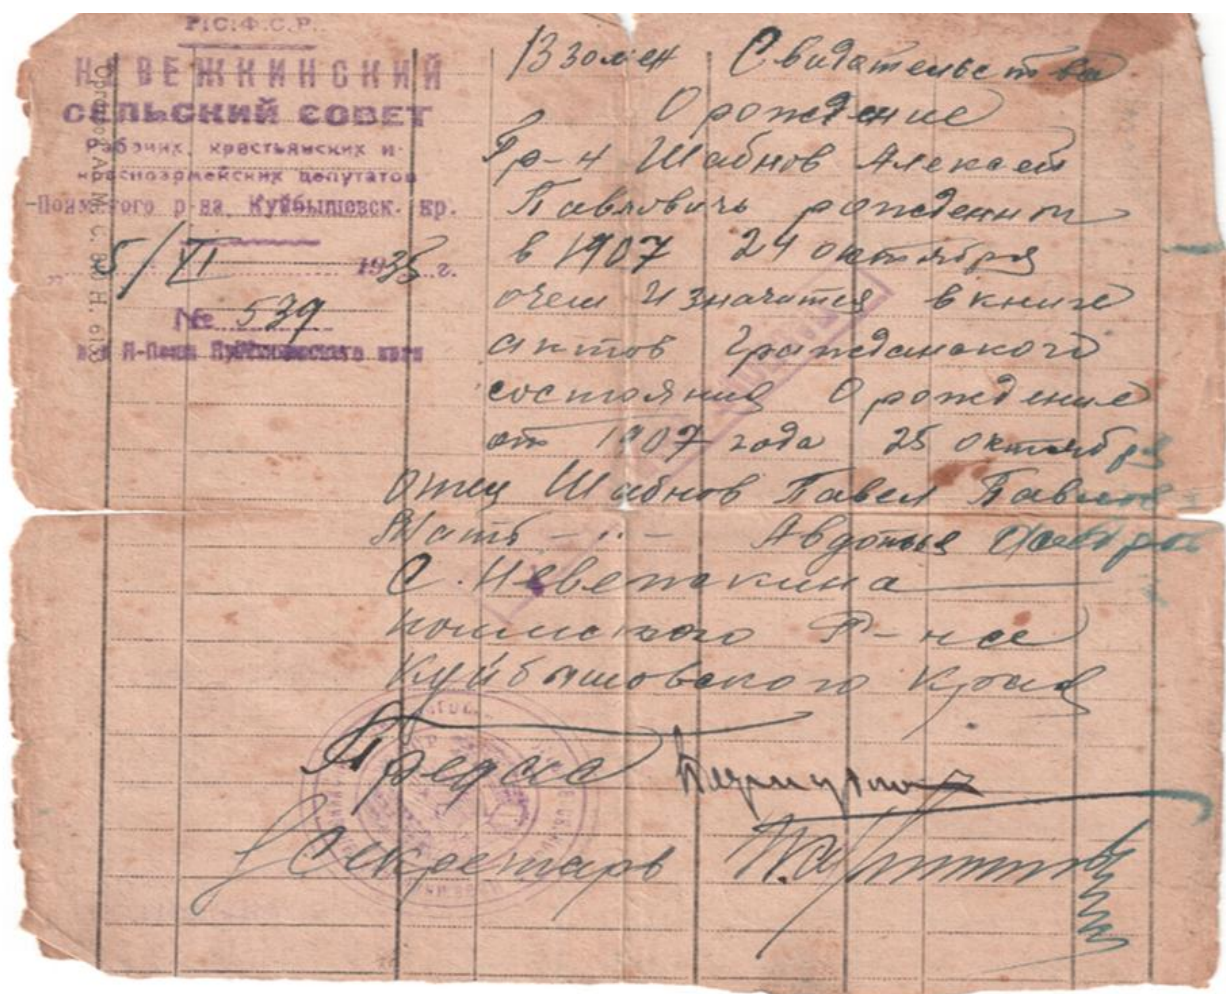 Р.С.Ф.С.Р.
НЕВЕЖКИНСКИЙ
СЕЛЬСКИЙ СОВЕТ
Рабочих, крестьянских и
красноармейских депутатов
р-на, Куйбышевск. кр.
5/XI 1935 г.
№ 539
Взомен Свидательства
О рождение
Гр-н Шабнов Алексей
Павловичь рожденный
в 1907 24 октября
очем И значится в книге
актов Гражданского
состояния О рождение
от 1907 года 25 октября
Отец Шабнов Павел Павлов
Мать -〃- Авдотья
С. Невежкина
поимского Р-на
Куйбышовского Края
Предс с/с
Секретарь